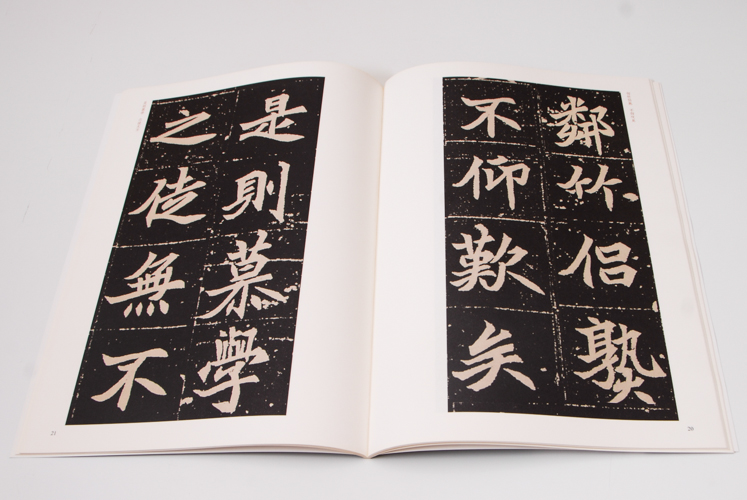 鄰竹侶
不仰歎矣
是則慕學
之徒無不
20
21